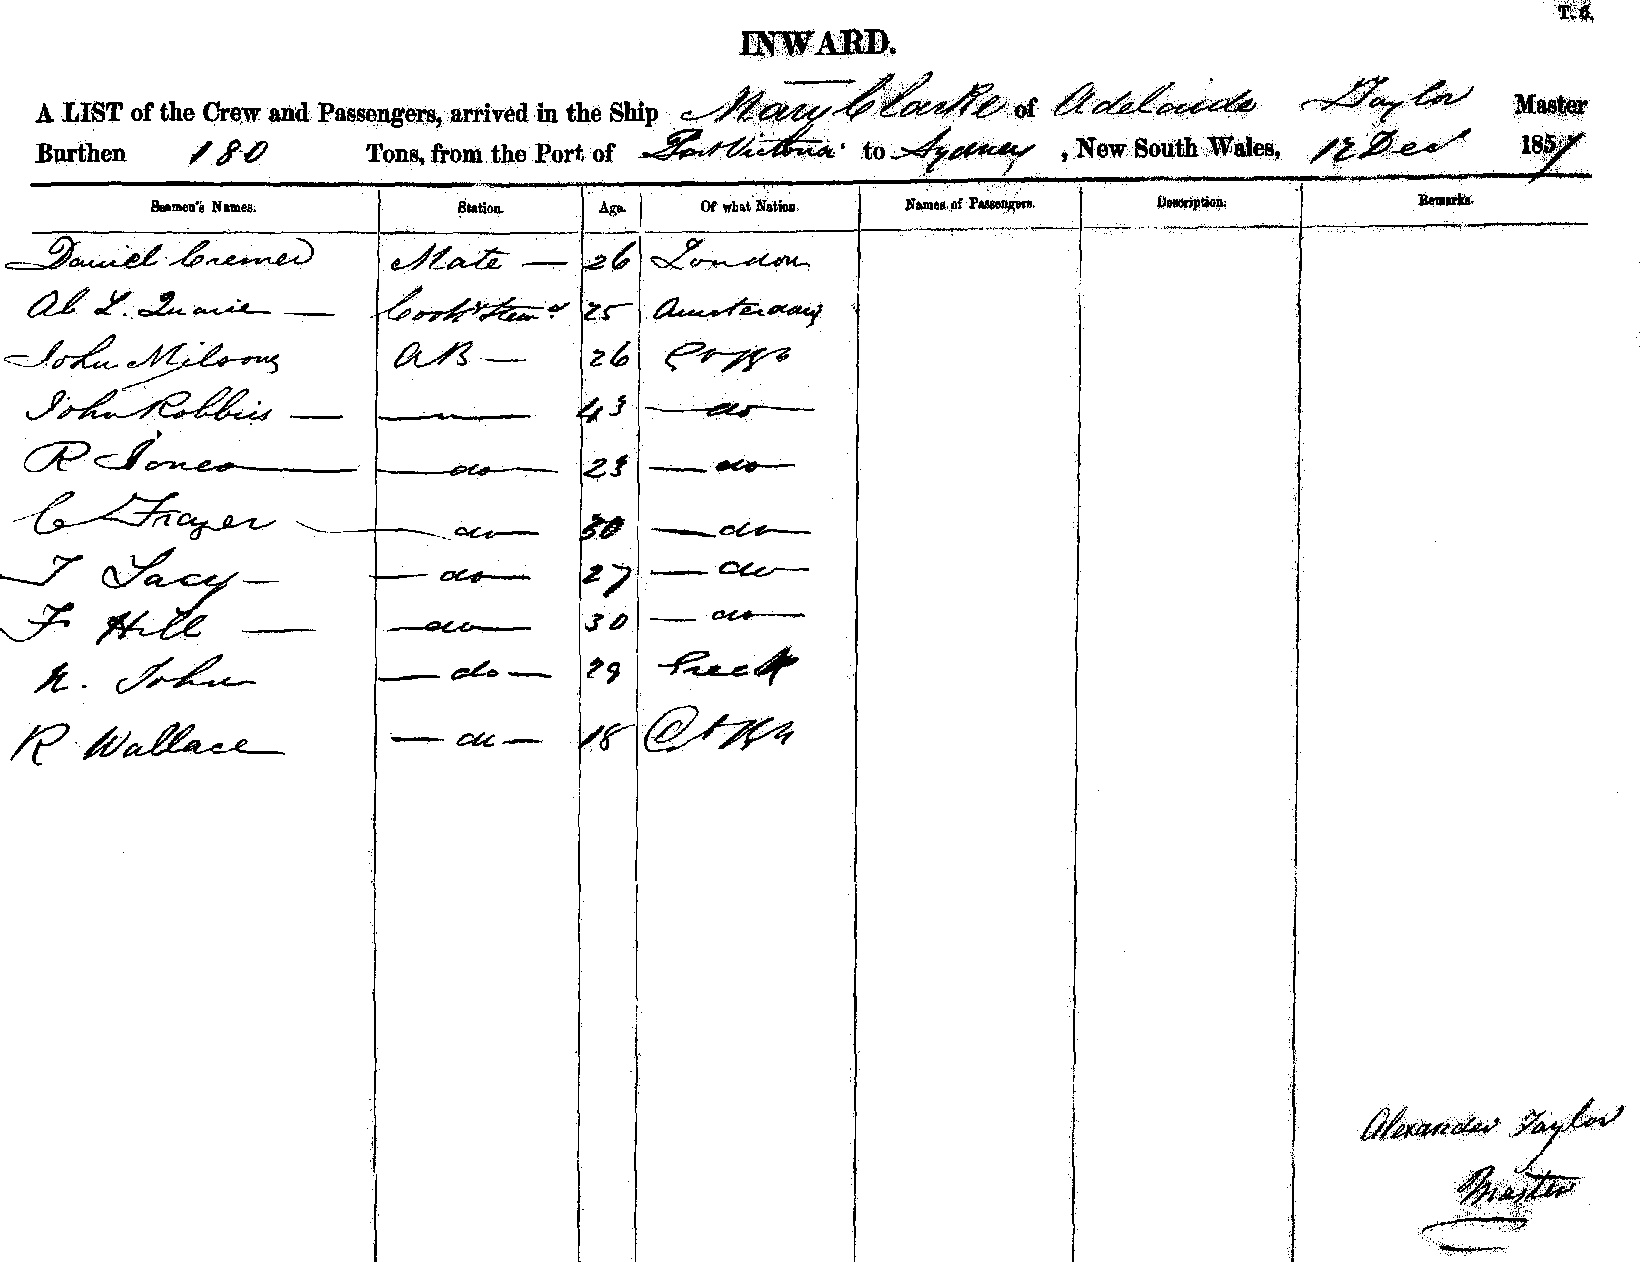 T. 6.
INWARD.
A LIST of the Crew and Passengers, arrived in the Ship Mary Clarke of Adelaide Taylor Master
Burthen 180 Tons, from the Port of Port Victoria to Sydney, New South Wales, 12 Dec 1857
Seamen's Names. Station. Age. Of what Nation. Names of Passengers. Description. Remarks.
Daniel Cremer Mate — 26 London
Ab L. — 25 Amsterdam
John Milsom AB — 26
John Robbins — — 43 — do —
R Jones — do — 23 — do —
C Frazer — do — 30 — do —
T Lacy — — do — 27 — do —
F Hill — — do — 30 — do —
N. John — do — 29 Greek
R Wallace — do — 18
Alexander Taylor
Master